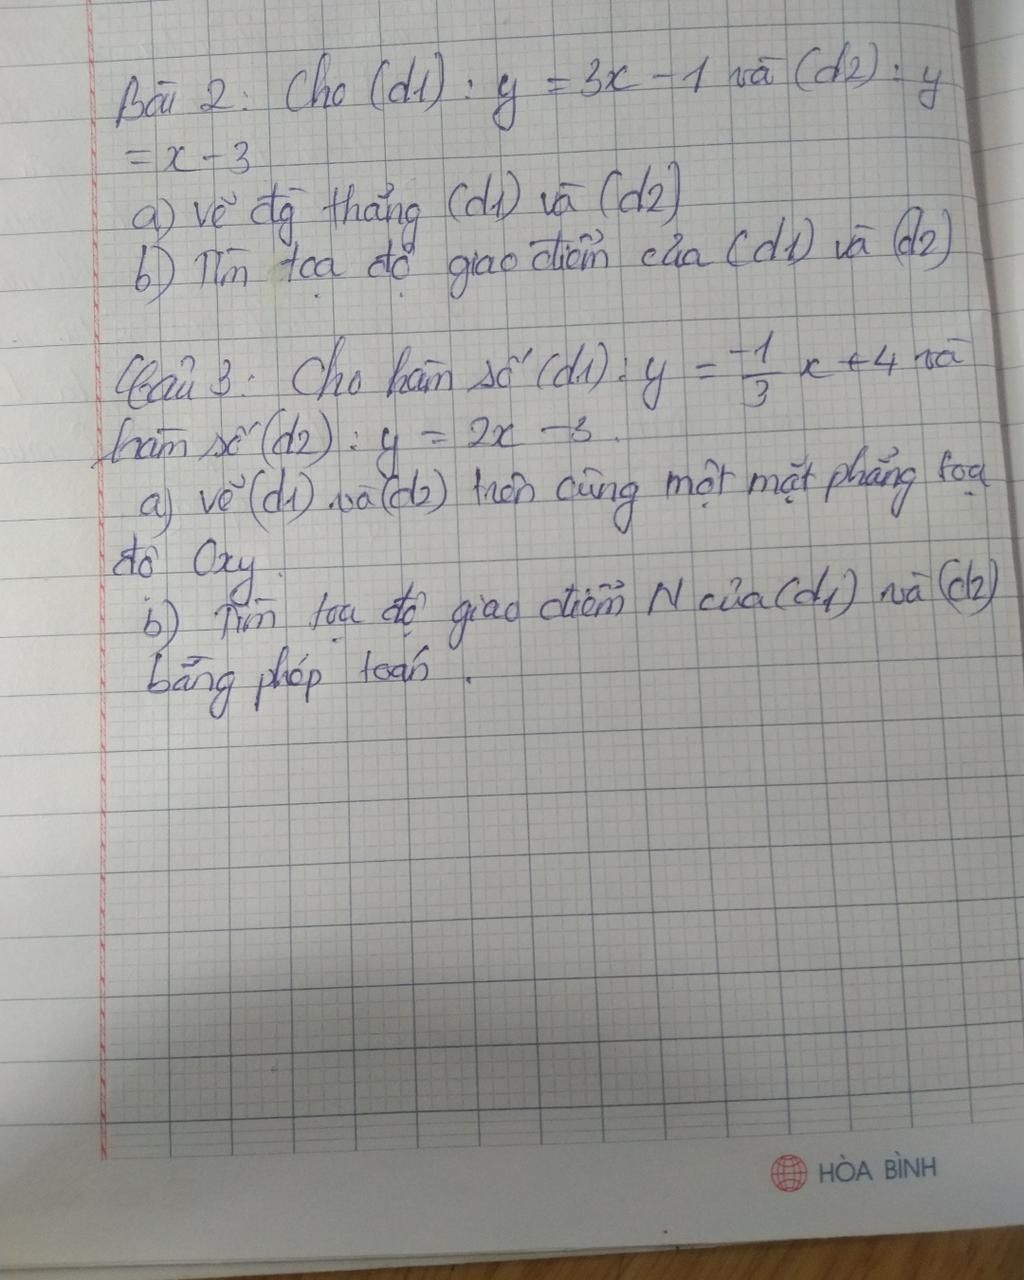 Bài 2: Cho (d1) : y = 3x - 1 và (d2) : y
= x - 3
a) Vẽ đg thẳng (d1) và (d2)
b) Tìm tọa độ giao điểm của (d1) và (d2)
Câu 3: Cho hàm số (d1) : y = \frac{-1}{3} x + 4 và
hàm số (d2) : y = 2x - 3.
a) vẽ (d1) và (d2) trên cùng một mặt phẳng tọa
độ Oxy.
b) Tìm tọa độ giao điểm N của (d1) và (d2)
bằng phép toán.
HÒA BÌNH